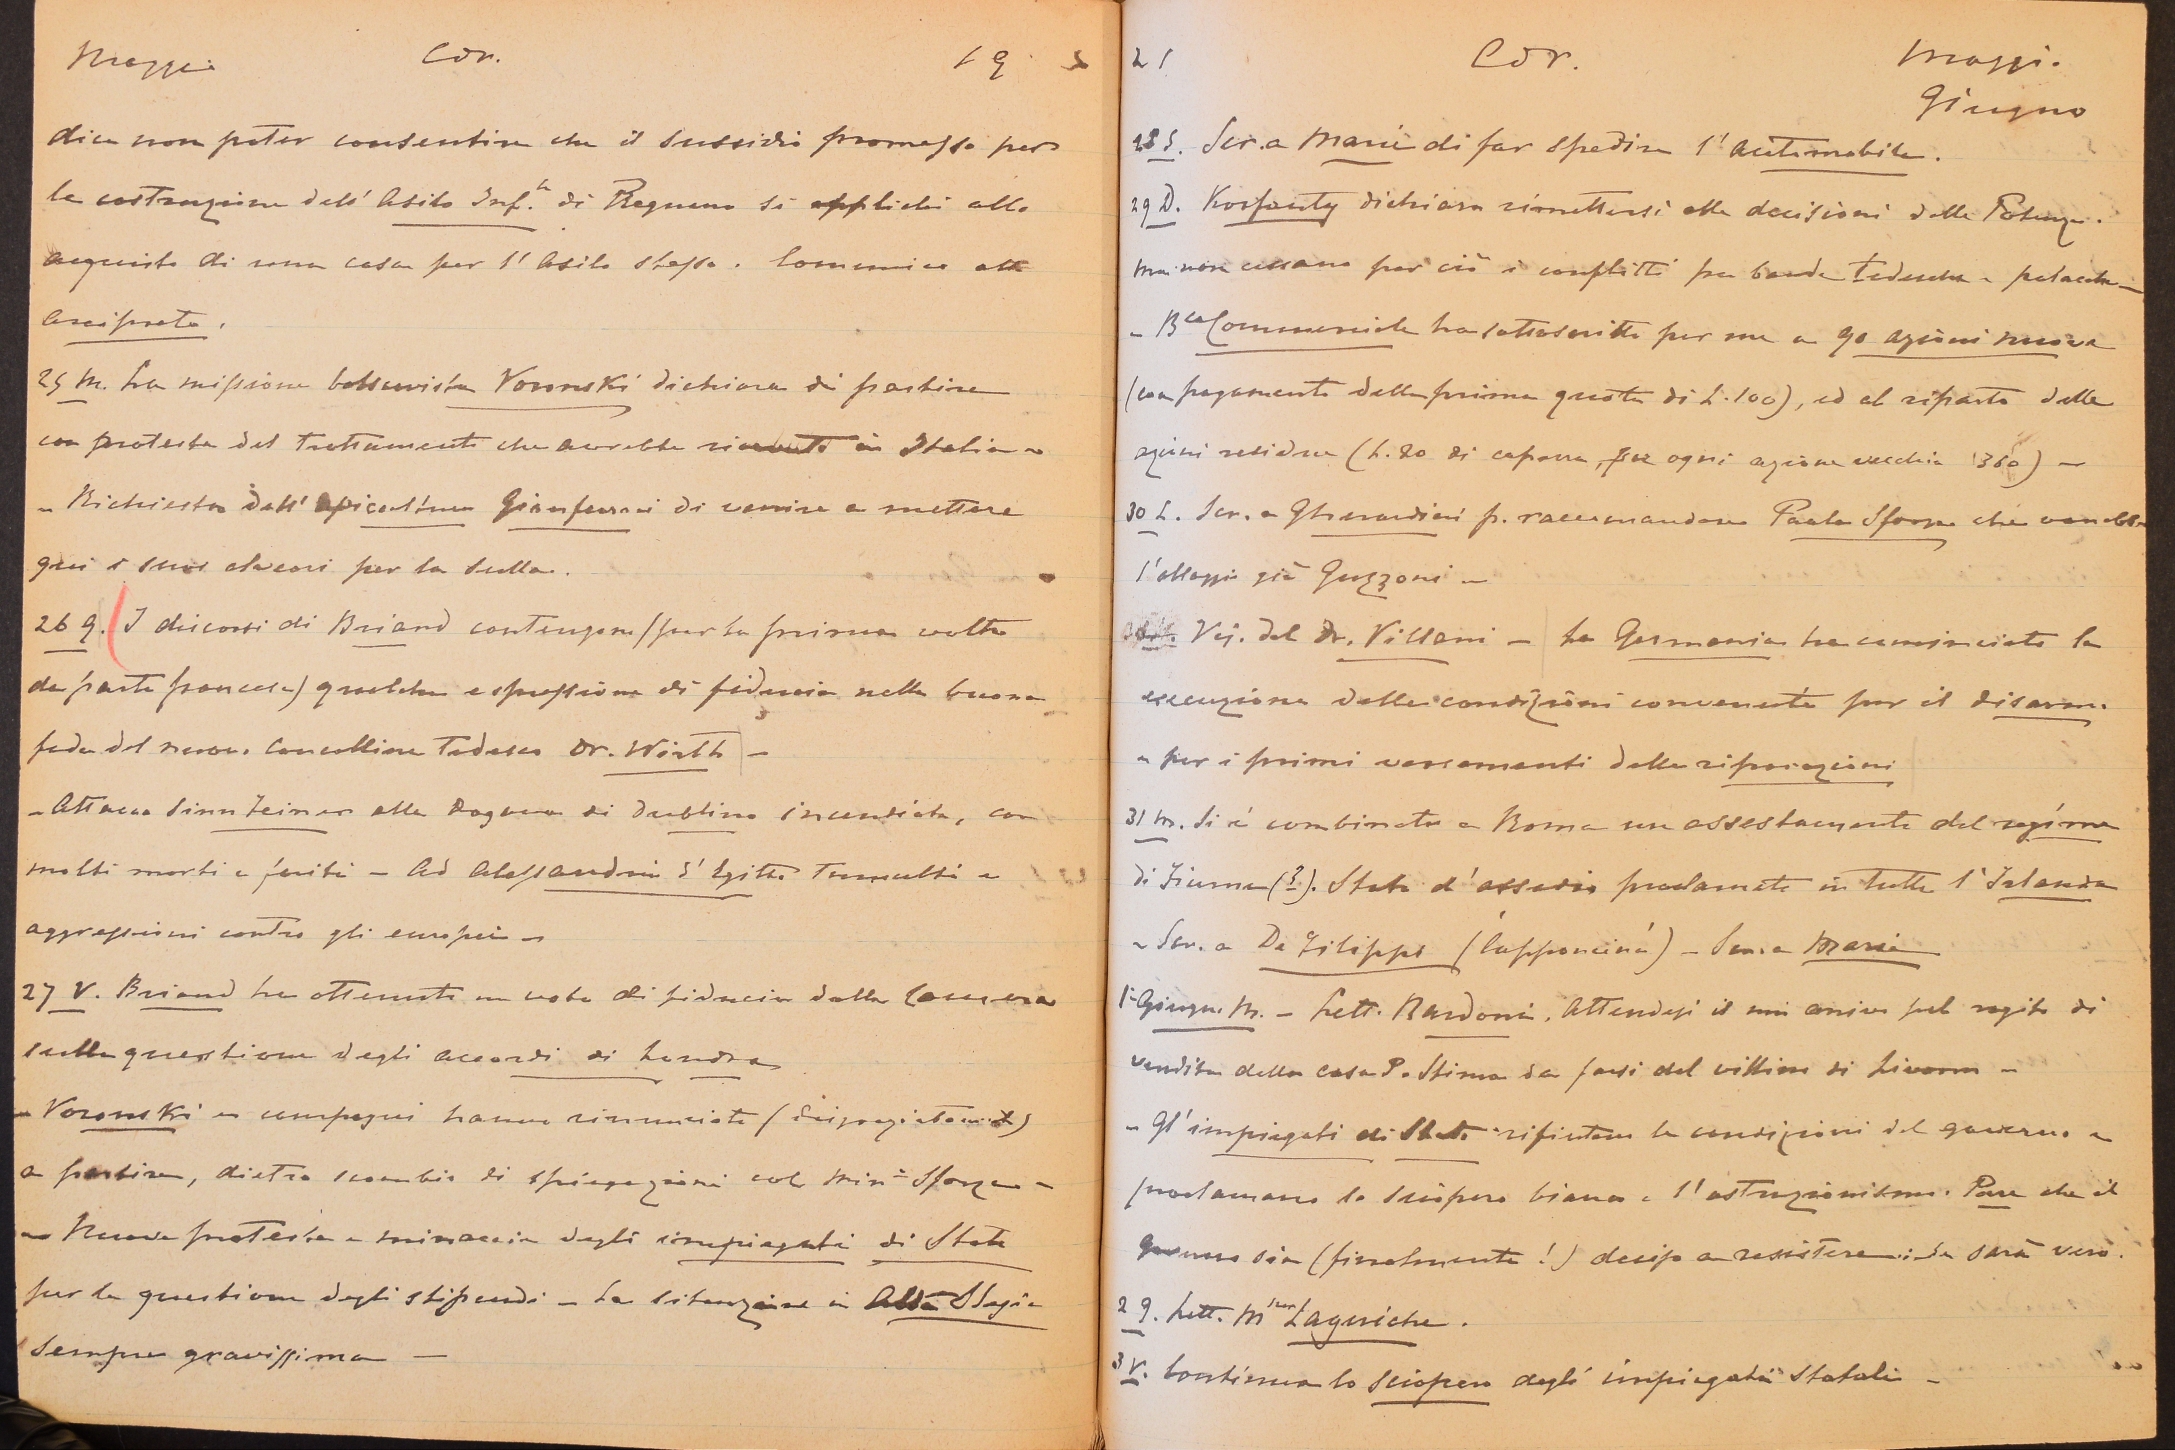 Maggio Cor. 19
dice non poter consentire che il sussidio promesso per
la costruzione dell'Asilo Inf.le di Regnano si applichi allo
acquisto di una casa per l'Asilo stesso. Comunico all'
Arciprete.
25 M. La missione bolscevista Voronski dichiara di partire
con protesta del trattamento che avrebbe ricevuto in Italia -
- Richiesta dell'apicultura Gianferrari di venire a mettere
qui i suoi alveari per la sulla.
26 G. I discorsi di Briand contengono (per la prima volta
da parte francese) qualche espressione di fiducia nella buona
fede del nuovo Cancelliere Tedesco Dr. Wirth -
- Attacco Sinn Feiner alla Dogana di Dublino incendiata, con
molti morti e feriti - Ad Alessandria d'Egitto tumulti e
aggressioni contro gli europei -
27 V. Briand ha ottenuto un voto di fiducia dalla Camera
sulla questione degli accordi di Londra
- Voronski e compagni hanno rinunciato (disgraziatamte)
a partire, dietro scambio di spiegazioni col Min° Sforza -
- Nuove proteste e minaccie degli impiegati di Stato
per la questione degli stipendi - La situazione in Alta Slesia
sempre gravissima -
21 Cor. Maggio
Giugno
28 S. Scr. a Marie di far spedire l'Automobile.
29 D. Korfanty dichiara rimettersi alle decisioni delle Potenze.
ma non cessano per ciò i conflitti fra bande tedesche e polacche -
- Bca Commerciale ha sottoscritto per me a 90 azioni nuove
(con pagamento della prima quota di L. 100), ed al riparto delle
azioni residue (L. 20 di caparra, per ogni azione vecchia 360) -
30 L. Scr. a Gherardini p. raccomandare Paolo Sforza che vorrebbe
l'alloggio già Guzzoni -
Vis. del Dr. Villani - La Germania ha cominciato la
esecuzione delle condizioni convenute per il disarmo
e per i primi versamenti delle riparazioni
31 M. Si è combinato a Roma un assestamento del regime
di Fiume (?). Stato d'assedio proclamato in tutta l'Irlanda
- Scr. a De Filippi (Capponcina) - Scr. a Marie
1° Giugno M. - Lett. Bardoni. Attendesi il mio arrivo pel rogito di
vendita della casa P. Stima da farsi del villino di Livorno -
- Gl'impiegati di Stato rifiutano le condizioni del governo e
proclamano lo sciopero bianco e l'ostruzionismo. Pare che il
governo sia (finalmente!) deciso a resistere: se sarà vero.
2 G. Lett. Laguiche.
3 V. Continua lo sciopero degli impiegati statali -